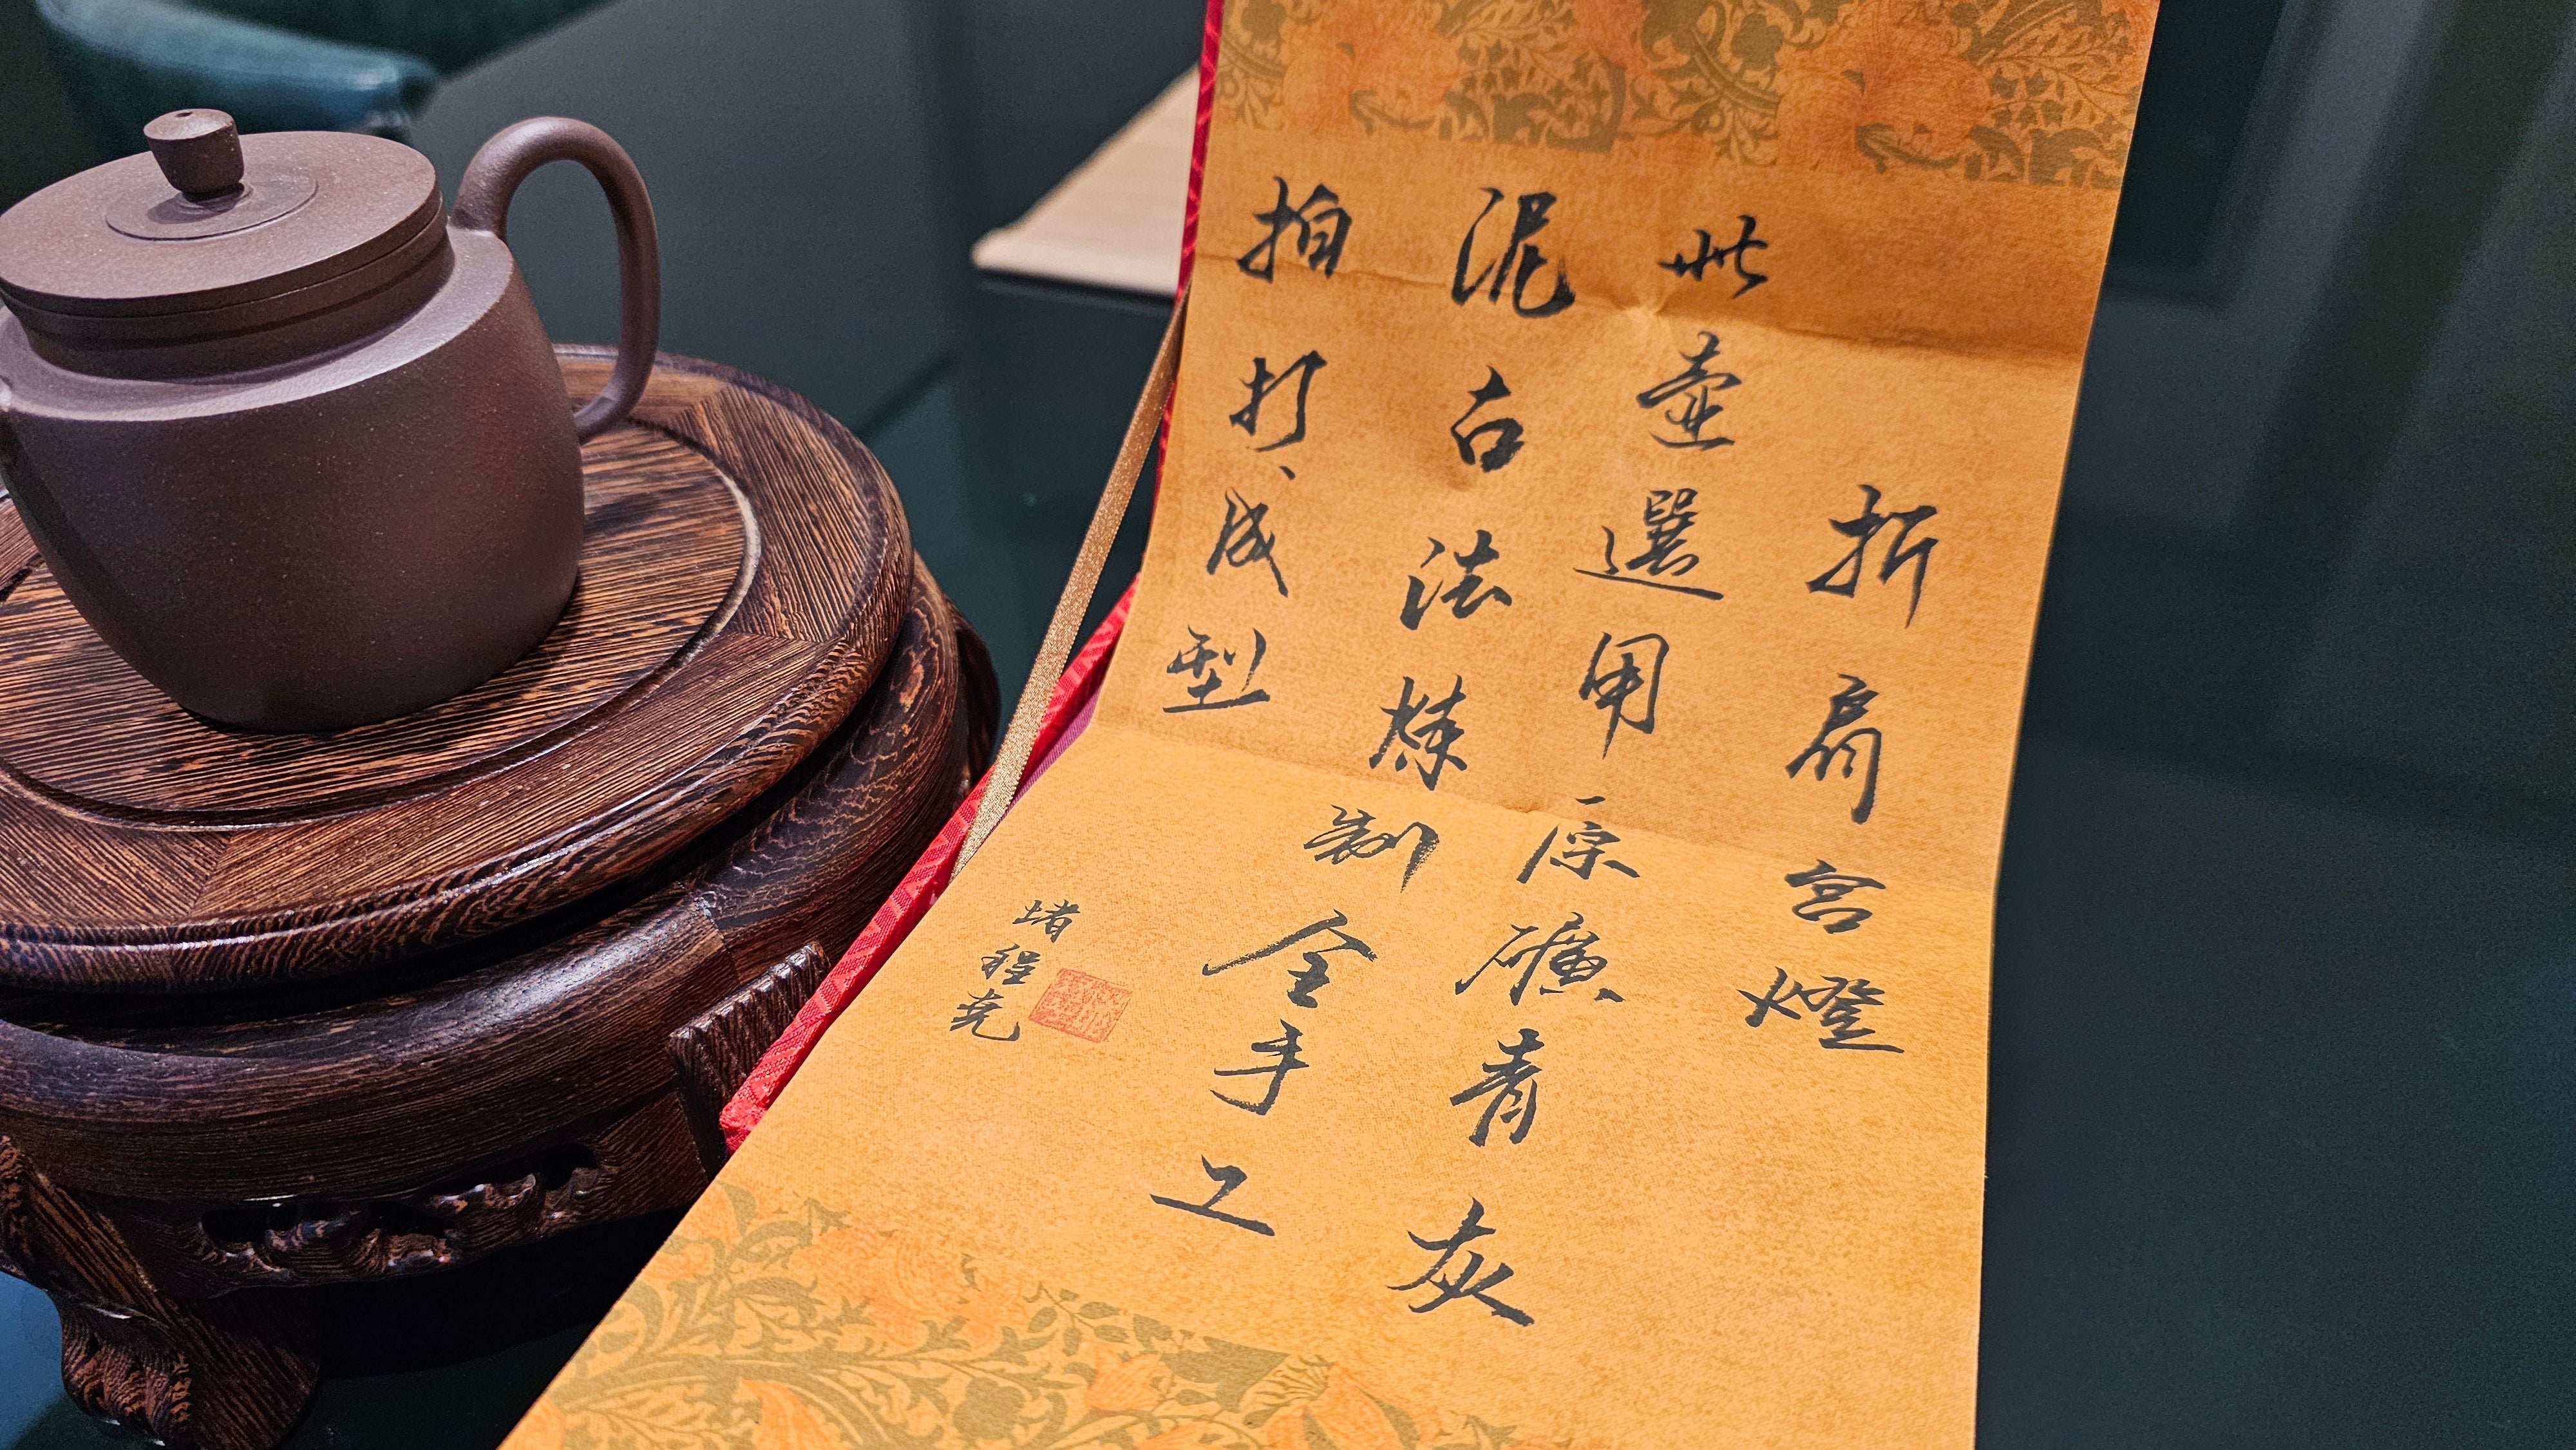 折肩宮燈
此壺選用原礦青灰
泥古法煉制全手工
拍打成型
堵程尭